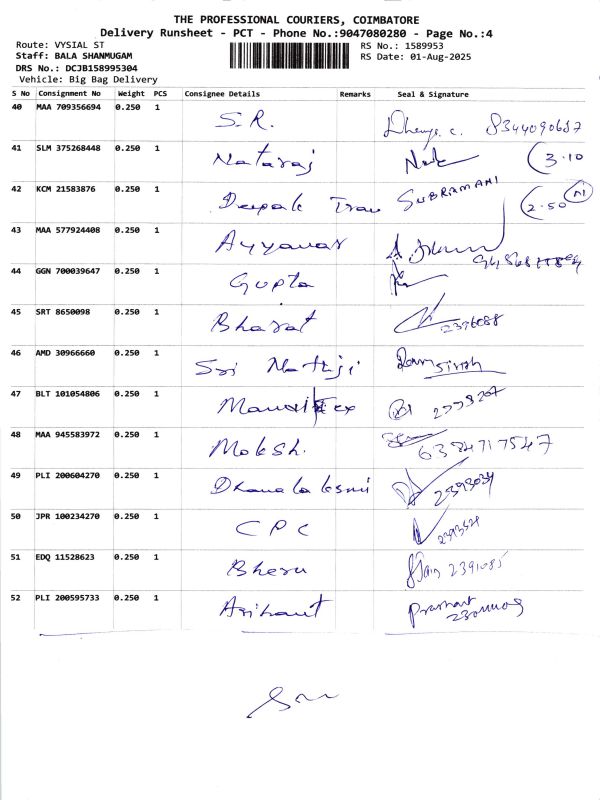 THE PROFESSIONAL COURIERS, COIMBATORE
Delivery Runsheet - PCT - Phone No.:9047080280 - Page No.:4
Route: VYSIAL ST
RS No.: 1589953
Staff: BALA SHANMUGAM
RS Date: 01-Aug-2025
DRS No.: DCJB158995304
Vehicle: Big Bag Delivery
S No Consignment No Weight PCS Consignee Details Remarks Seal & Signature
40 MAA 709356694 0.250 1 S.R.
41 SLM 375268448 0.250 1 Nataraj 3.10
42 KCM 21583876 0.250 1 Deepak SUBRAMANI 2.50
43 MAA 577924408 0.250 1 Ayyanar
44 GGN 700039647 0.250 1 Gupta
45 SRT 8650098 0.250 1 Bharat 2396088
46 AMD 30966660 0.250 1 Sri Nathji Ram Singh
47 BLT 101054806 0.250 1
48 MAA 945583972 0.250 1 Moksh. 6384717547
49 PLI 200604270 0.250 1 Dhanalaksmi 2393034
50 JPR 100234270 0.250 1 CPC
51 EDQ 11528623 0.250 1 Bheru 2391085
52 PLI 200595733 0.250 1 Arihant Prashant